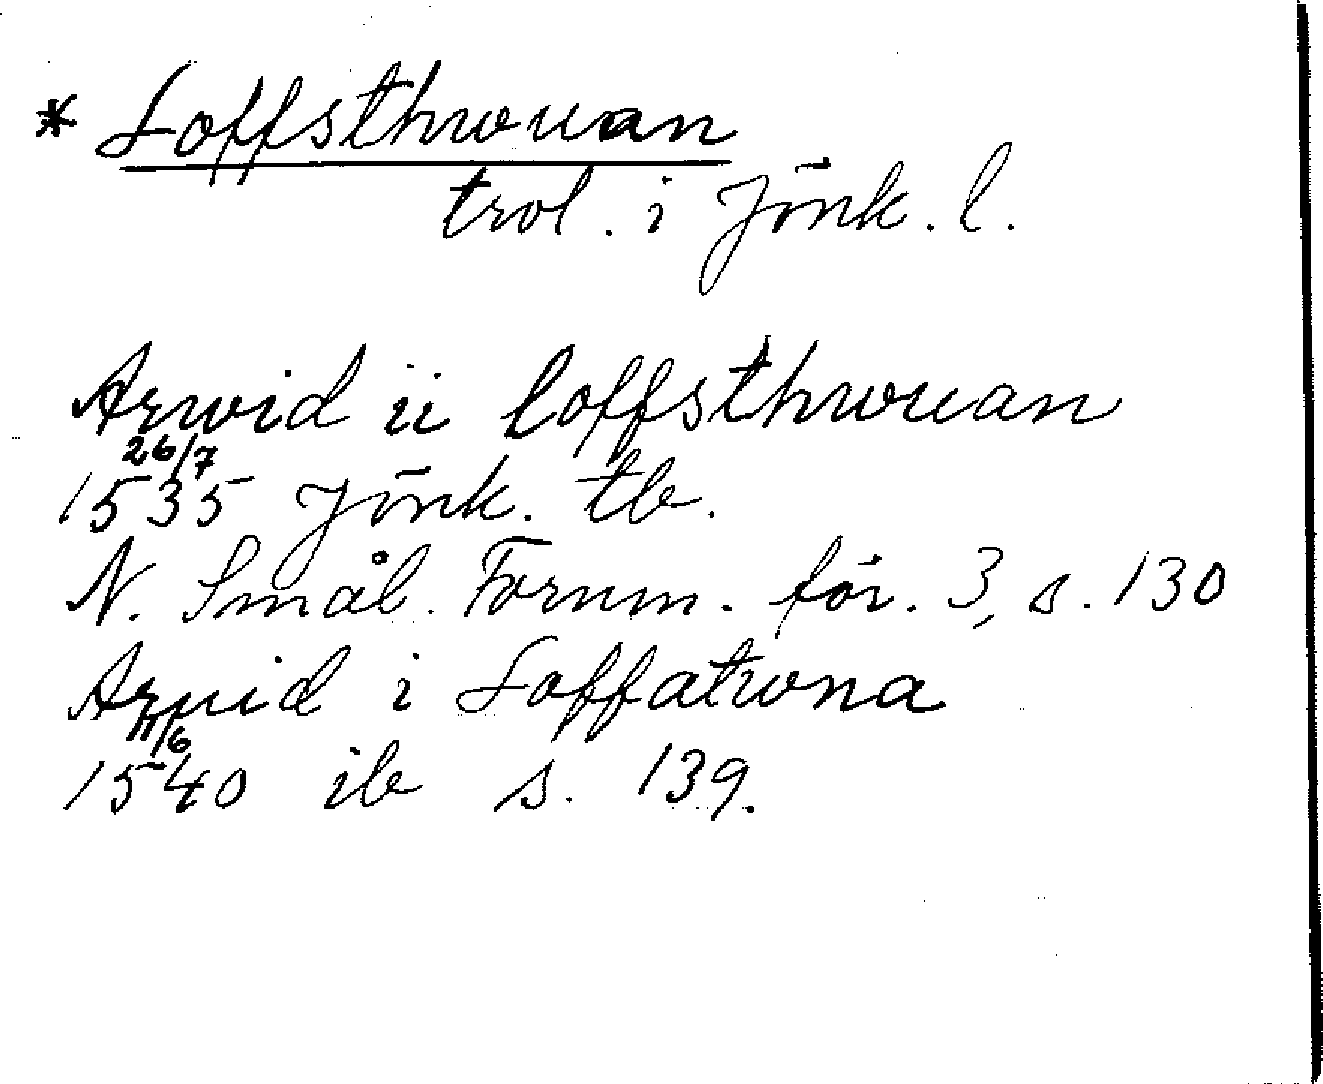 * Loffsthwuan
trol. i Jönk. l.
Arwid ii loffsthwuan
26/7
1535 Jönk. tb.
N. Smål. Fornm. för. 3, s. 130
Aruid i Loffatwna
11/6
1540 ib s. 139.